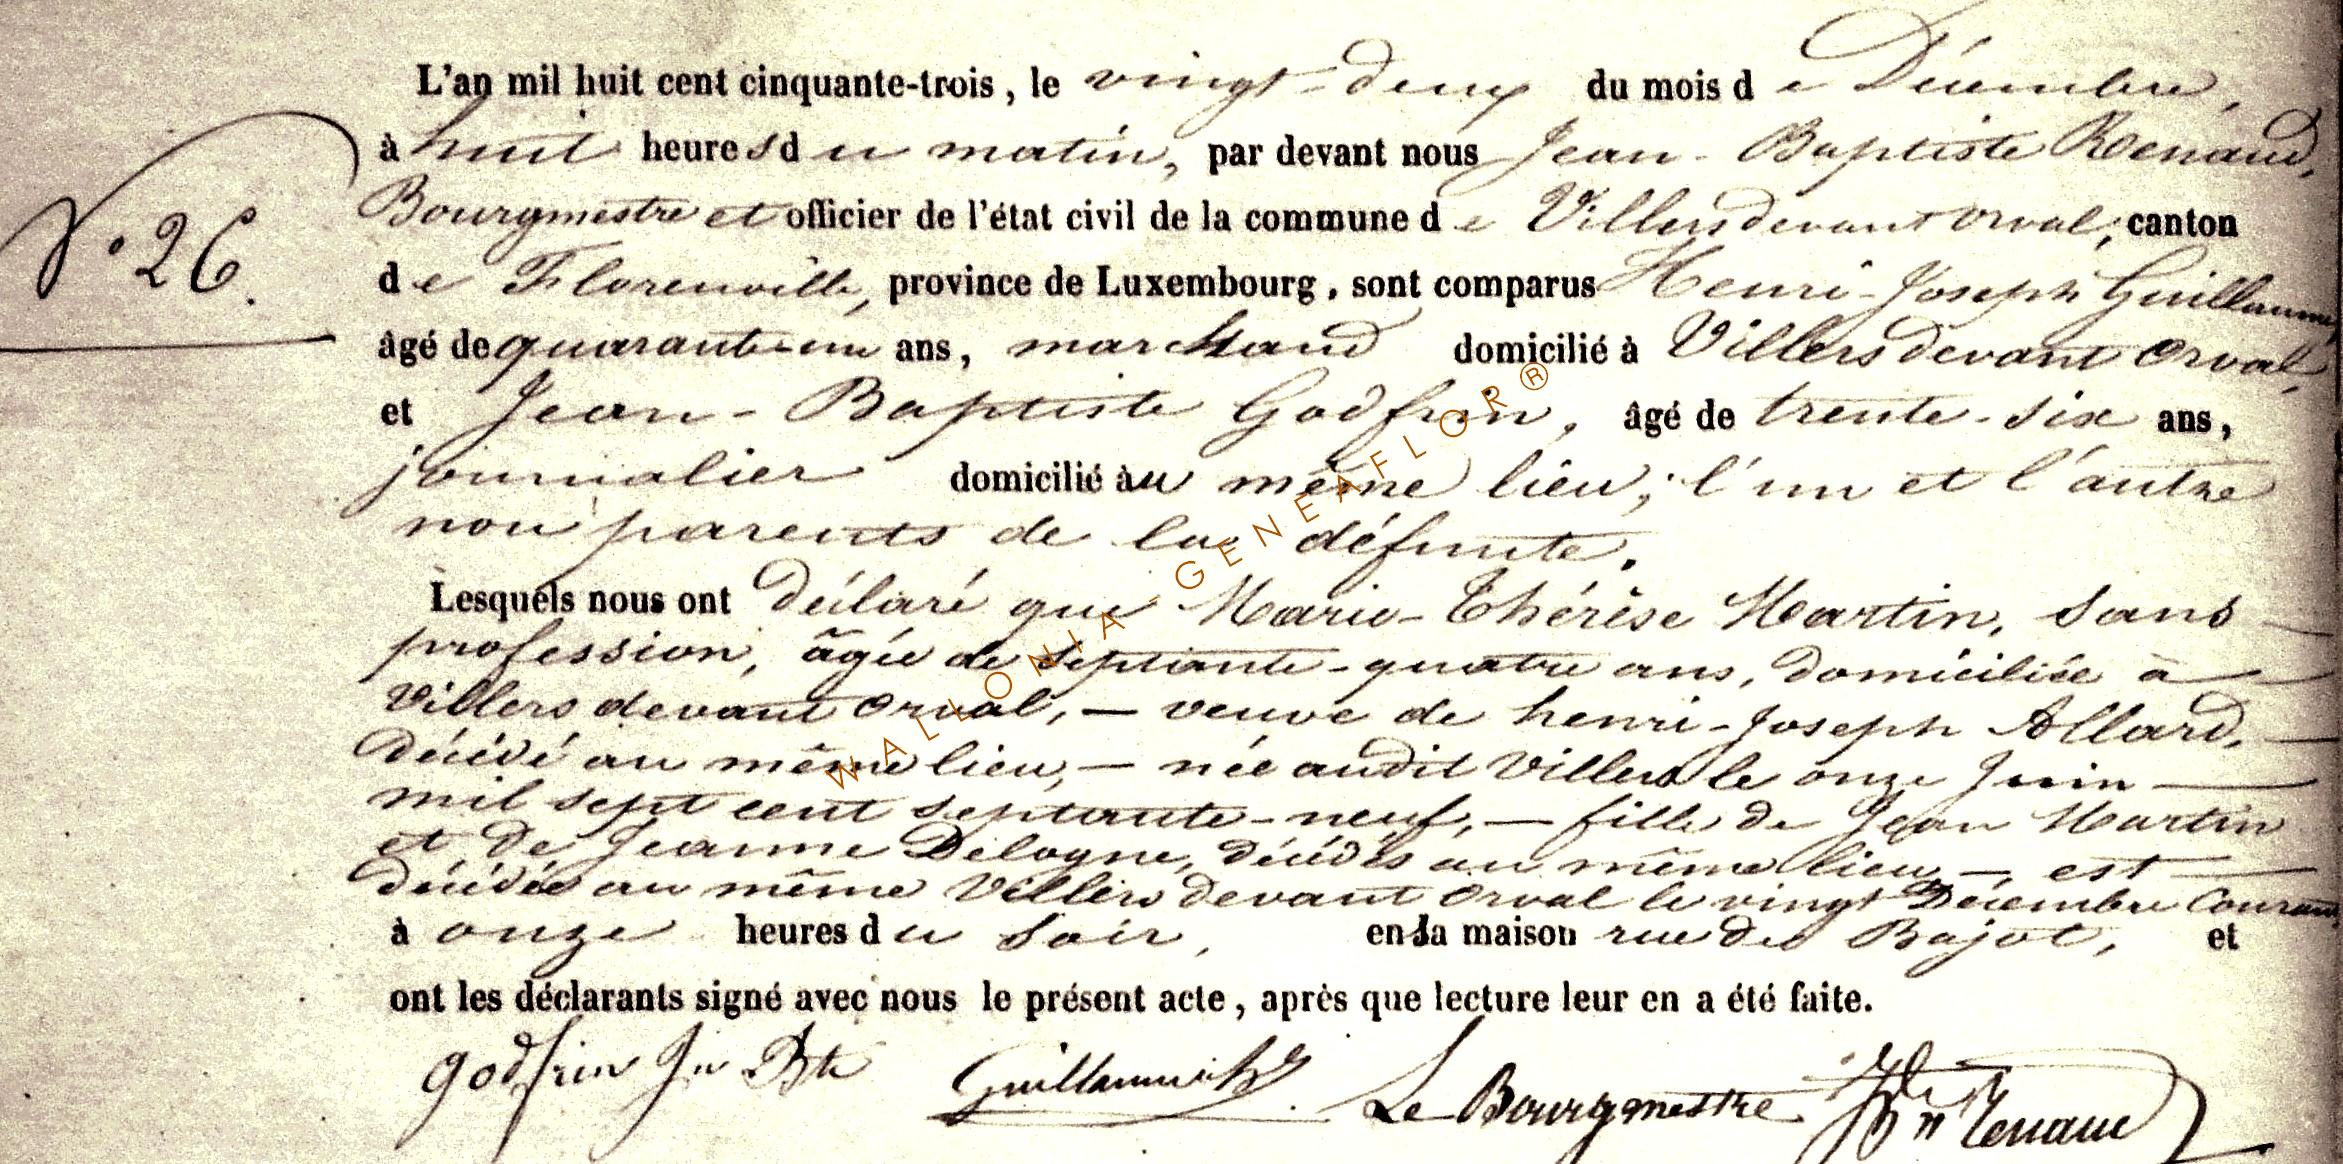 L'an mil huit cent cinquante-trois, le vingt-deux du mois de Décembre,
à huit heures du matin, par devant nous Jean-Baptiste Renaud,
Bourgmestre et officier de l'état civil de la commune de Villers devant Orval, canton
N° 26.
de Florenville, province de Luxembourg, sont comparus Henri-Joseph Guillaume,
âgé de quarante-un ans, marchand domicilié à Villers devant Orval,
et Jean-Baptiste Godfrin, âgé de trente-six ans,
journalier domicilié au même lieu; l'un et l'autre
non parents de la défunte.
Lesquels nous ont déclaré que Marie-Thérèse Martin, sans
profession, âgée de septante-quatre ans, domiciliée à
Villers devant Orval, — veuve de henri-Joseph Allard,
décédé au même lieu, — née audit Villers le onze Juin
mil sept cent septante-neuf, — fille de Jean Martin
et de Jeanne Delogne, décédés au même lieu —, est
décédée au même Villers devant Orval le vingt Décembre Courant,
à onze heures du soir, en sa maison rue du Bajot, et
ont les déclarants signé avec nous le présent acte, après que lecture leur en a été faite.
godfrin Jn Bte Guillaume Le Bourgmestre Renaud
WALLONIA-GENEAFLOR®